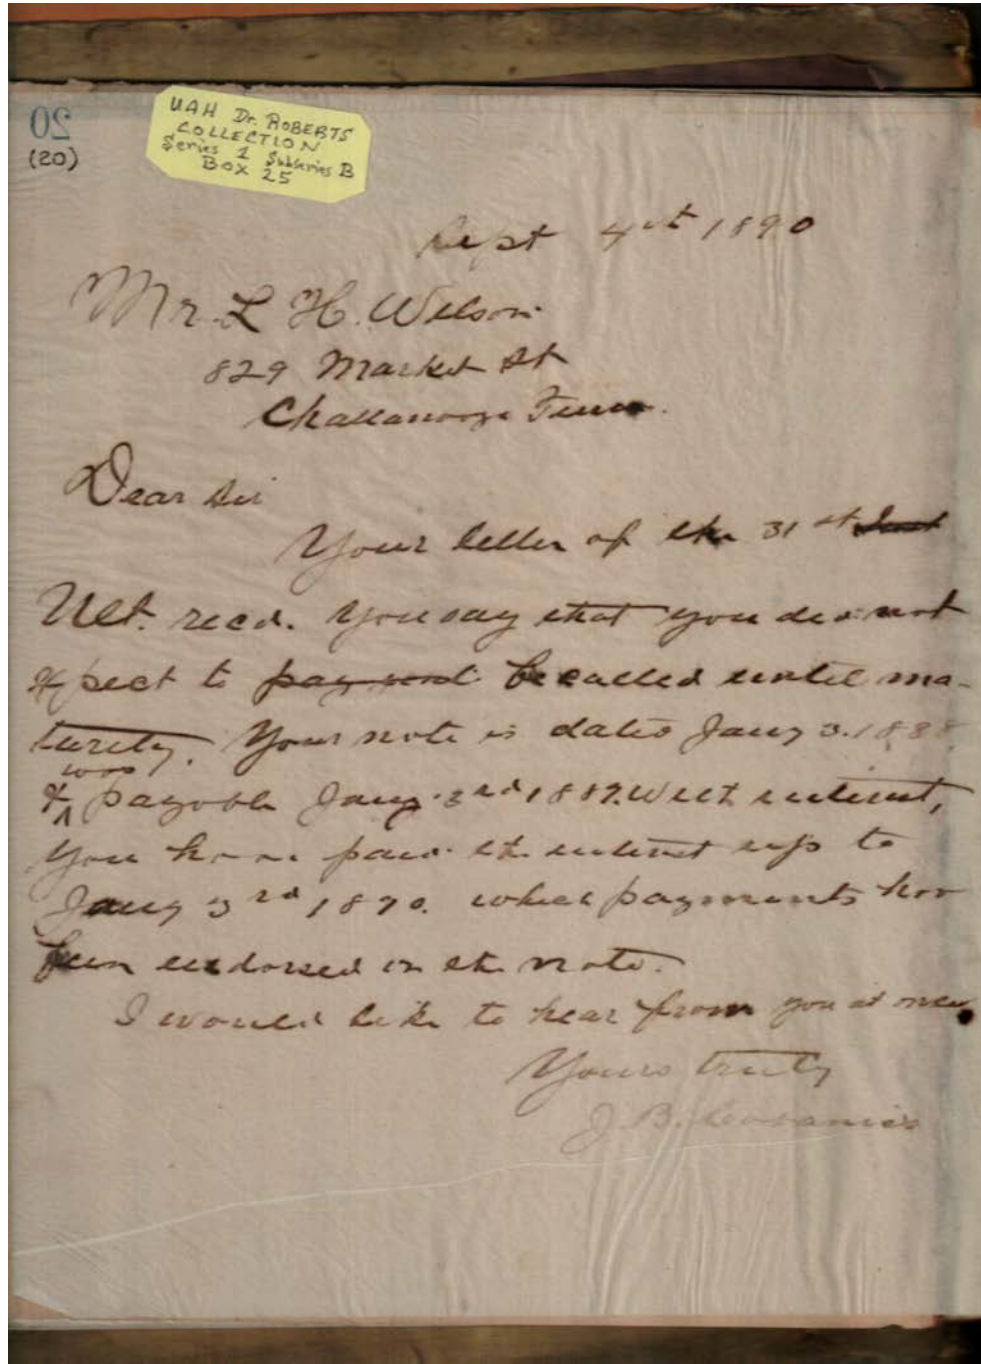 20
(20)
UAH Dr. ROBERTS
COLLECTION
Series 1 Subseries B
Box 25
Sept 4th 1890
Mr. L H. Wilson
829 Market St
Chattanooga Tenn.
Dear Sir
Your letter of the 31st
Ult. recd. You say that you did not
expect to pay until be called until ma-
turity. Your note is dated Jany 3. 1888
was
& payable Jany 3rd 1889. With interest,
You have paid the interest up to
Jany 3rd 1890. which payments hav
been endorsed on the note.
I would like to hear from you at once
Yours truly
J. B.